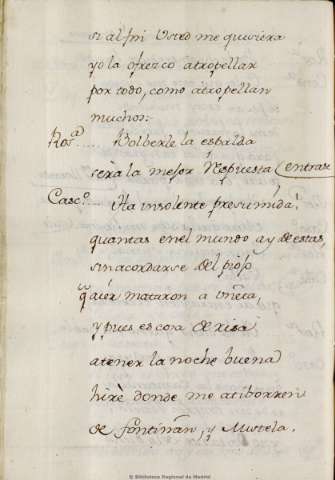 si al fin Usted me quisiera
yo la ofrezco atropellar
por todo, como atropellan
muchos:
Rosª..... Bolberle la espalda
será la mejor Respuesta (entrase
Cascº.... Ha insolente presumida!
quantas en el mundo ay de estas
sin acordarse del piojo
q aier mataron a uñeta,
y pues es cora de risa
atener la noche buena
hirè donde me atiborren
de, y Mistela.
© Biblioteca Regional de Madrid